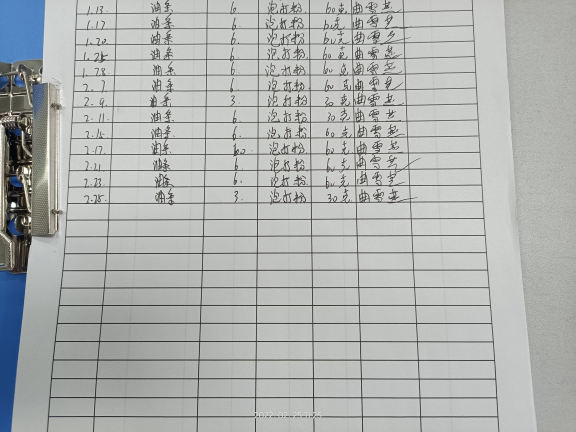 1.13. 油条 6. 泡打粉 60克 曲雪芝
1.17 油条 6. 泡打粉 60克 曲雪芝
1.20. 油条 6. 泡打粉. 60克 曲雪芝
1.25 油条 6 泡打粉 60克 曲雪芝
1.28. 油条 6 泡打粉 60克 曲雪芝
2.7 油条 6 泡打粉 60克 曲雪芝
2.9. 油条 3. 泡打粉 30克 曲雪芝
2.11. 油条 6. 泡打粉 30克 曲雪芝
2.15. 油条 6. 泡打粉 60克 曲雪芝
2.17. 油条 泡打粉 60克 曲雪芝
2.21 油条 6 泡打粉 60克 曲雪芝
2.23. 油条 6. 泡打粉 60克 曲雪芝
2.25. 油条 3. 泡打粉 30克 曲雪芝